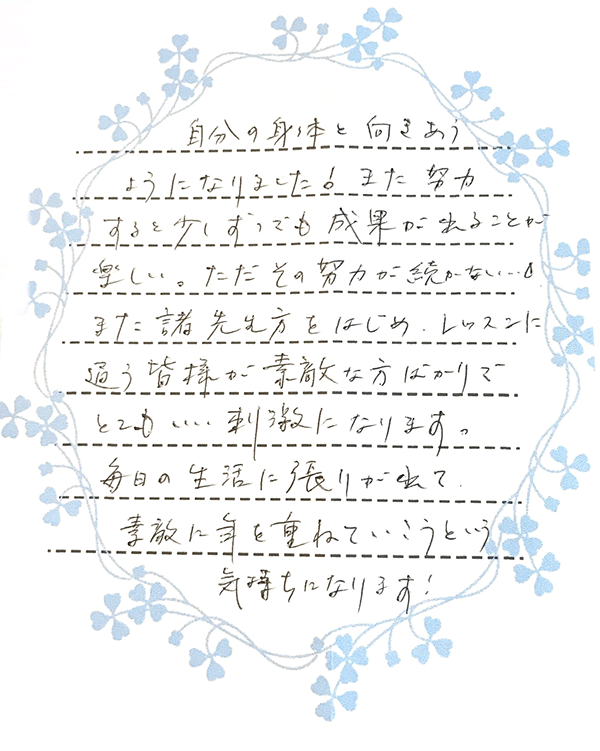 自分の身体と向きあう
ようになりました! また 努力
すると少しずつでも 成果が出ることが
楽しい。ただその努力が続かない…!
また 諸先生方をはじめ、レッスンに
通う皆様が素敵な方ばかりで
とてもいい刺激になります。
毎日の生活に張りが出て、
素敵に年を重ねていこうという
気持ちになります!